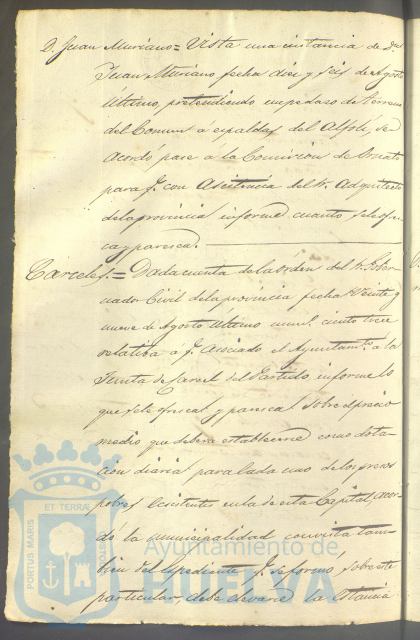 D. Juan Muriano = Vista una instancia de Dn.
Juan Muriano fecha diez y seis de Agosto
último, pretendiendo un pedazo de terreno
del Comun a espaldas del Alfolí, se
acordó pase a la Comision de Ornato
para q. con Asistencia del Sr. Arquitecto
de la provincia informe cuanto se le ofrez-
ca y paresca.
Carceles. = Dada cuenta de la orden del Sr. Gober-
nador Civil de la provincia fecha Veinte y
nueve de Agosto último num. ciento trece
relatiba a q. Asociado el Ayuntamto. a la
Junta de Carcel del Partido, informe lo
que se le ofresca y paresca sobre el precio
medio que debera establecerse como dota-
cion diaria para cada uno de los presos
pobres Ecsistentes en la de esta Capital, acor-
dó la municipalidad con vista tam-
bien del espediente q. se formó sobre este
particular, debe elevarse la estancia
PORTUS MARIS
ET TERRÆ
Ayuntamiento de
HUELVA